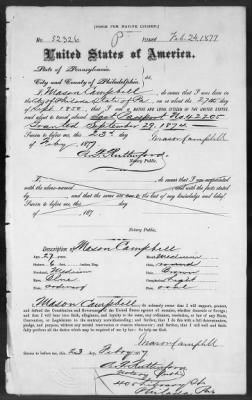 [FORM FOR NATIVE CITIZEN.]
No. 52326 Issued Feb. 24, 1877
United States of America.
State of Pennsylvania,
City and County of Philadelphia, ss.
I, Mason Campbell do swear that I was born in
the City of Philada State of Pa on the 27th day
of Sept 1850 that I am a NATIVE AND LOYAL CITIZEN OF THE UNITED STATES
and about to travel abroad Last Passport No 42205
Granted September 29, 1874
Sworn to before me, this 23d day
of Feby 1877 Mason Campbell
Notary Public.
I, do swear that I am acquainted
with the above-named
and with the facts above stated by him, and that the same are true to the best of my knowledge and belief.
Sworn to before me, this day
of 187
Notary Public.
Description of Mason Campbell
Age: 27 years
Stature: 6 feet
Forehead: Medium
Eyes: Blue
Nose: ordinary
Mouth: Medium
Chin: round
Hair: Brown
Complexion:
Face: oval
I, Mason Campbell do solemnly swear that I will support, protect,
and defend the Constitution and Government of the United States against all enemies, whether domestic or foreign;
and that I will bear true faith, allegiance, and loyalty to the same, any ordinance, resolution, or law of any State,
Convention, or Legislature to the contrary notwithstanding; and further, that I do this with a full determination,
pledge, and purpose, without any mental reservation or evasion whatsoever; and further, that I will well and
faithfully perform all the duties which may be required of me by law. So help me God.
Mason Campbell
Sworn to before me, this 23 day Feby 1877
Notary Public
Philada Pa